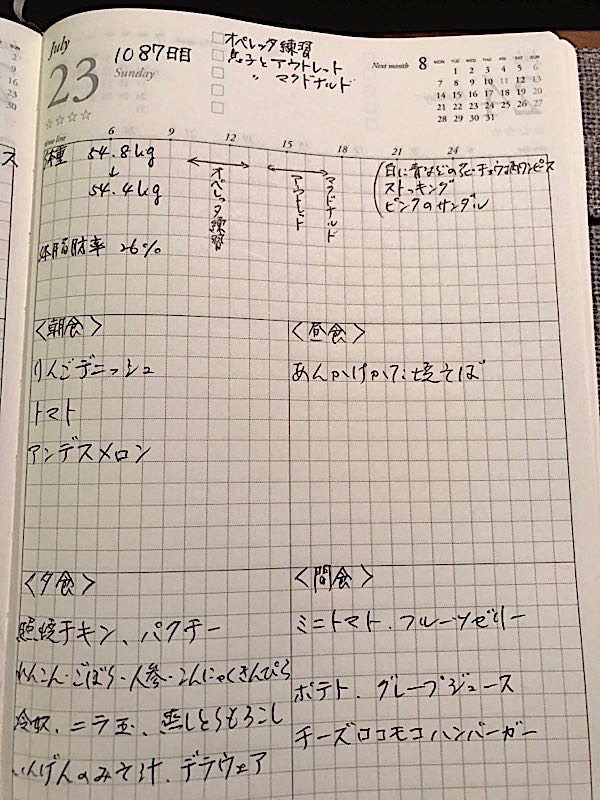 July
23
1087日目
Sunday
オペレッタ練習
息子とアウトレット
〃 マクドナルド
Next month 8
MON TUE WED THU FRI SAT SUN
1 2 3 4 5 6
7 8 9 10 11 12 13
14 15 16 17 18 19 20
21 22 23 24 25 26 27
28 29 30 31
☆☆☆☆
time line 6 9 12 15 18 21 24
体重 54.8kg
↓
54.4kg
オペレッタ練習
アウトレット
マクドナルド
ストッキング
ピンクのサンダル
体脂肪率 26%
<朝食>
りんごデニッシュ
トマト
アンデスメロン
<昼食>
あんかけかた焼そば
<夕食>
照焼チキン、パクチー
れんこん・ごぼう・人参・こんにゃくきんぴら
冷奴、ニラ玉、蒸しとうもろこし
いんげんのみそ汁、デラウェア
<間食>
ミニトマト、フルーツゼリー
ポテト、グレープジュース
チーズロコモコハンバーガー